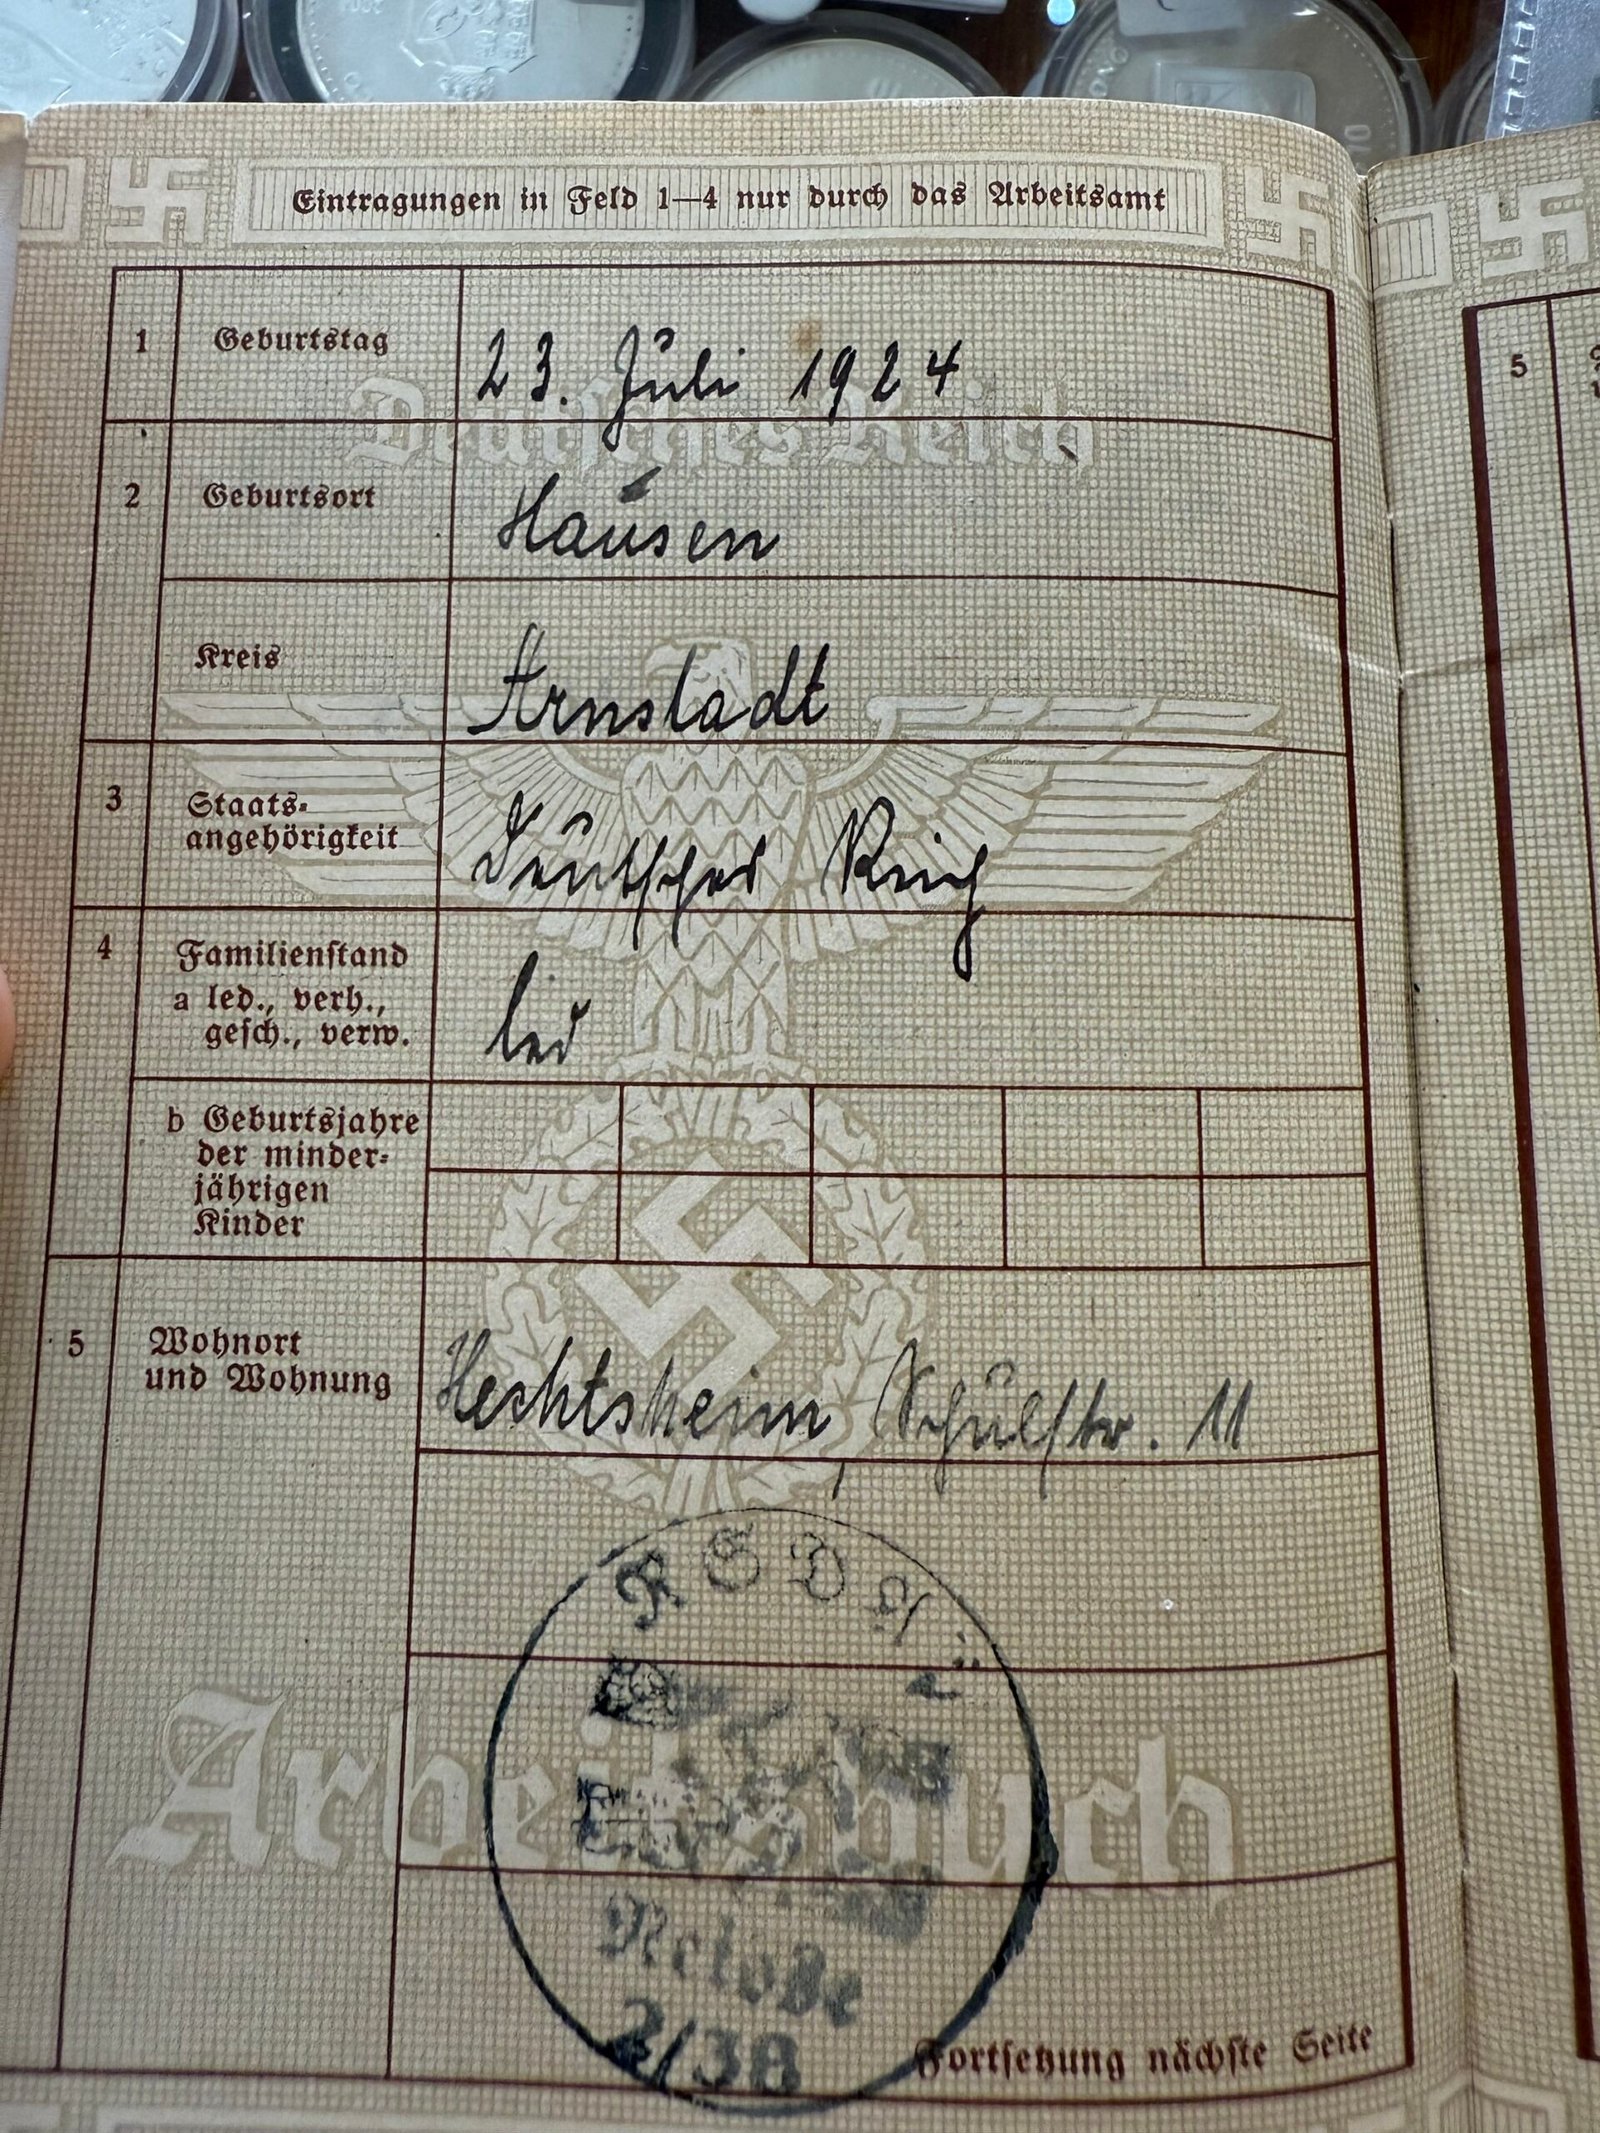 Eintragungen in Feld 1—4 nur durch das Arbeitsamt
1 Geburtstag 23. Juli 1924
Deutsches Reich
2 Geburtsort Hausen
Kreis Arnstadt
3 Staats-
angehörigkeit Deutsches Reich
4 Familienstand
a led., verh.,
gesch., verw. led
b Geburtsjahre
der minder-
jährigen
Kinder
5 Wohnort
und Wohnung Hechtsheim, Schulstr. 11
Arbeitsbuch
2/38
Fortsetzung nächste Seite
5